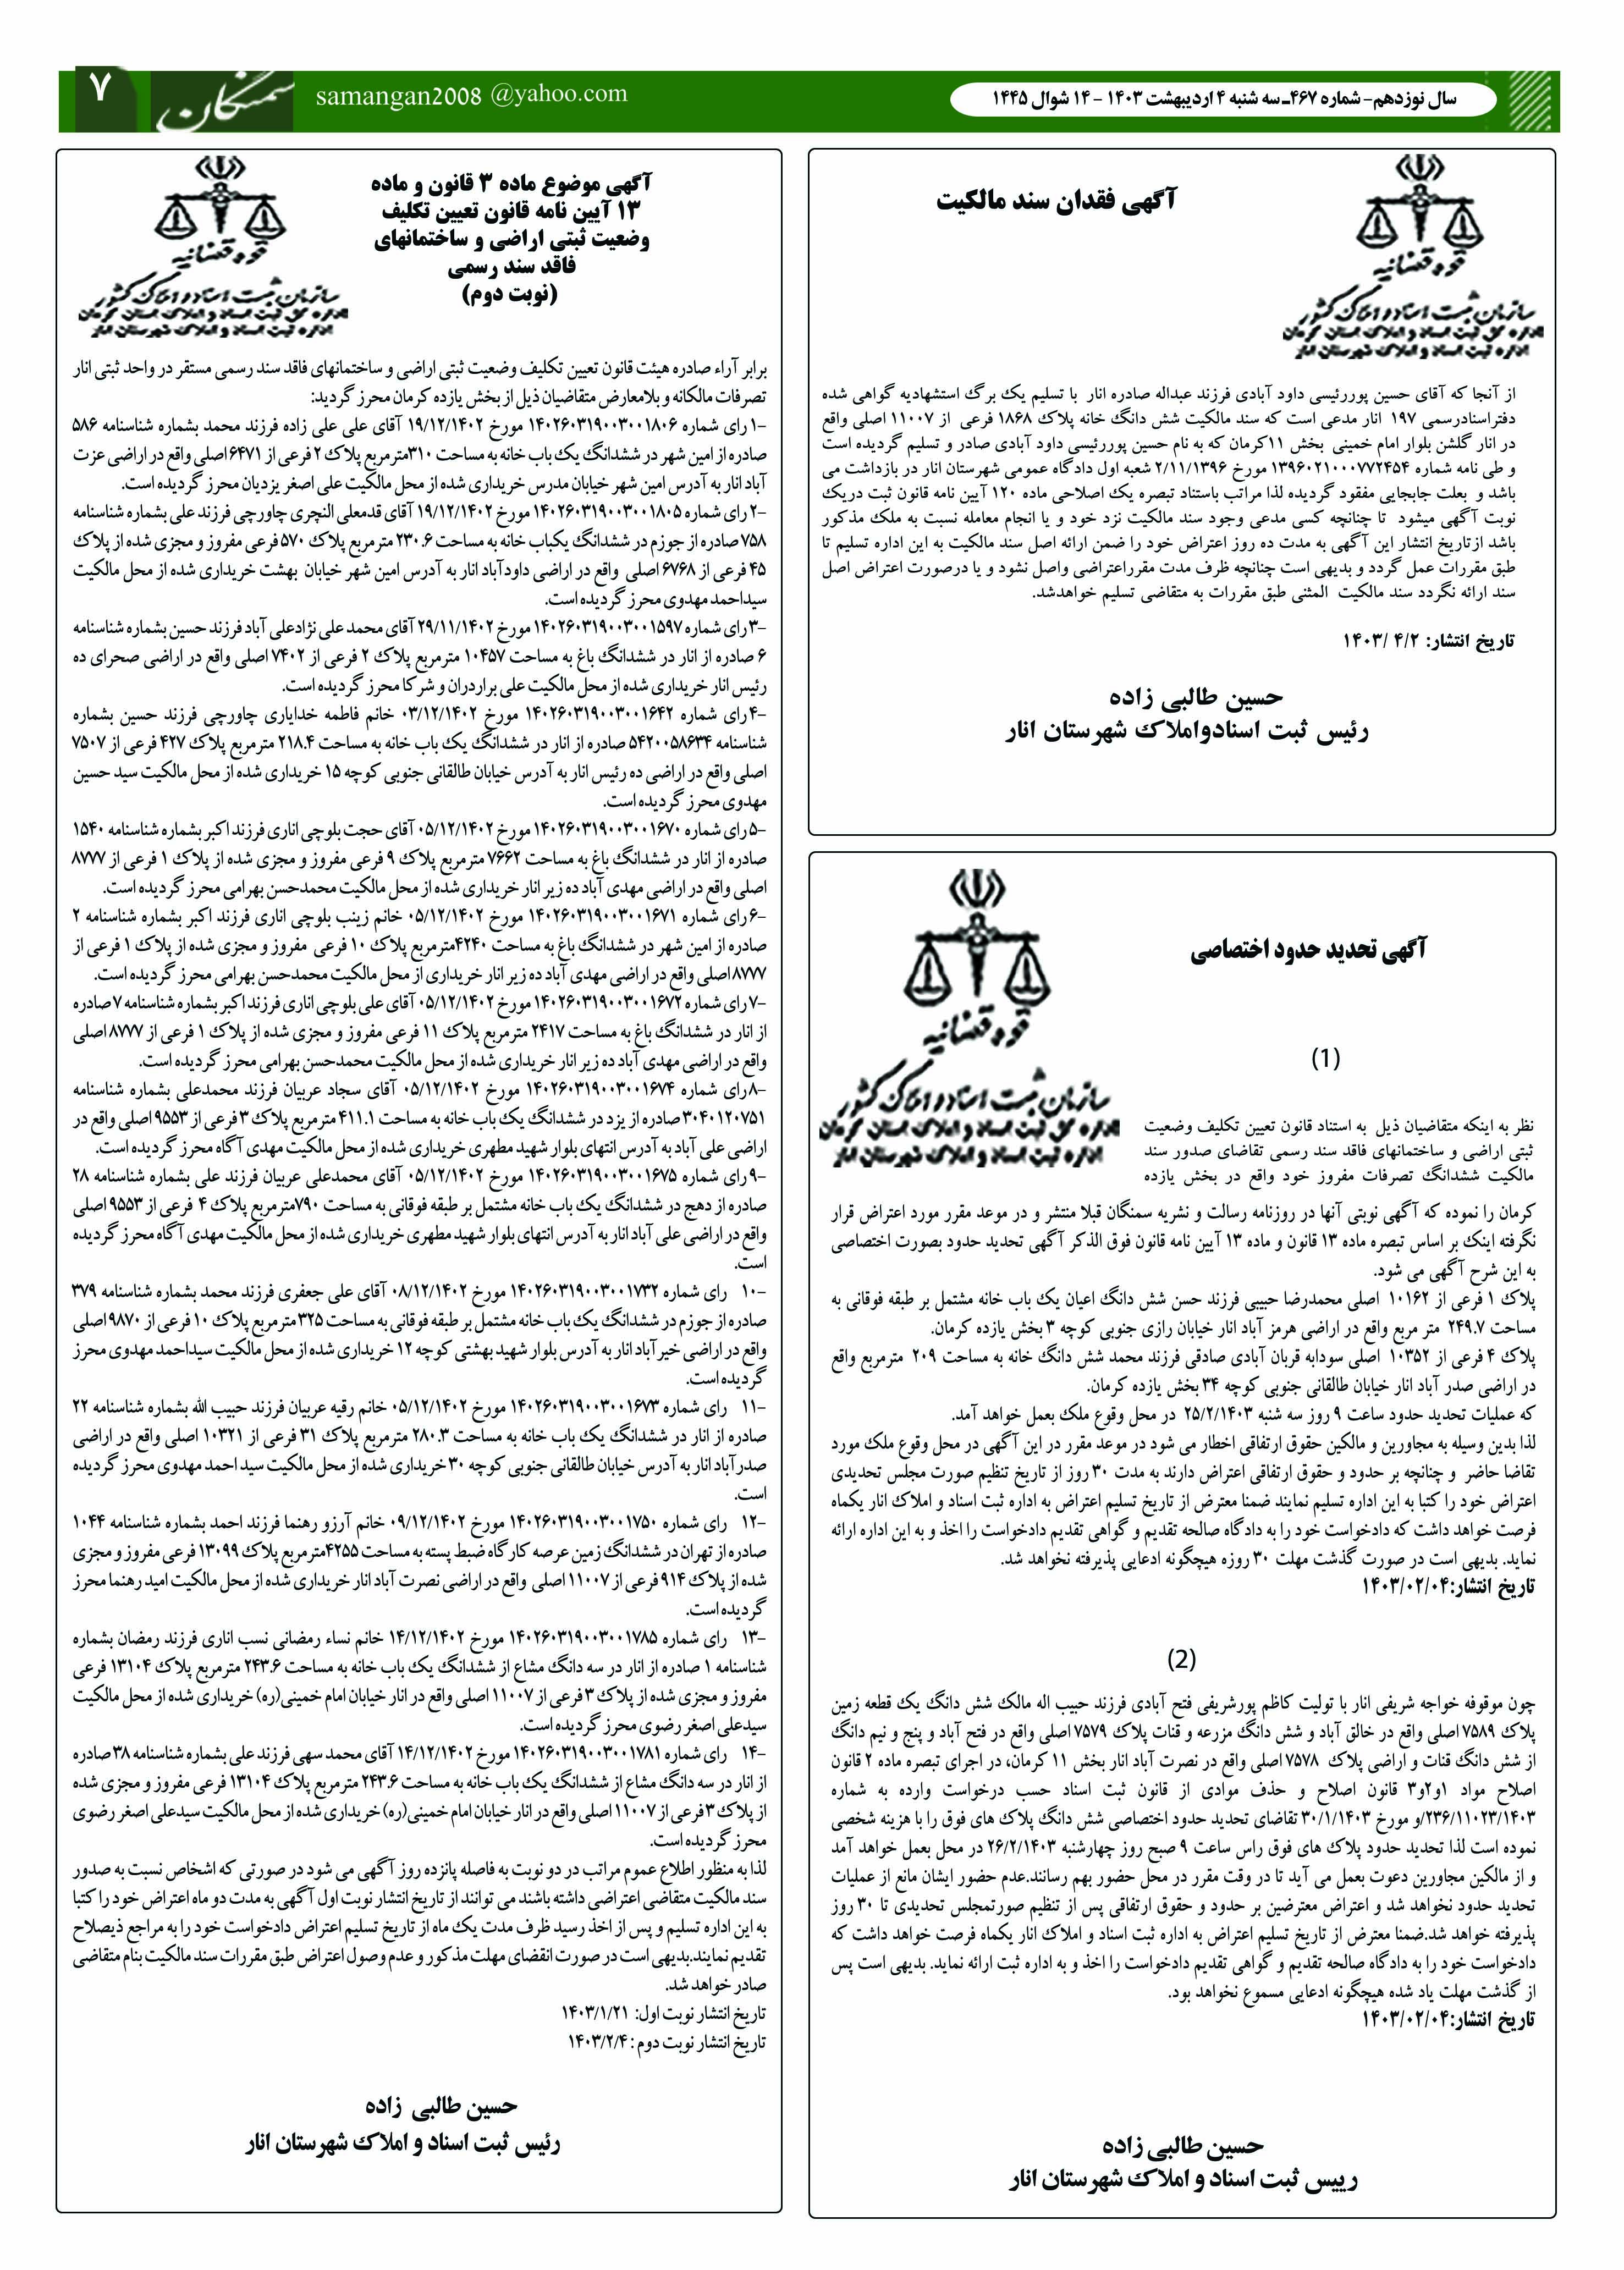 سال نوزدهم- شماره ۴۶۷ـ سه شنبه ۴ اردیبهشت ۱۴۰۳ - ۱۴ شوال ۱۴۴۵
samangan2008 @yahoo.com
سمنگان
۷
آگهی فقدان سند مالکیت
قوه قضائیه
سازمان ثبت اسناد و املاک کشور
اداره کل ثبت اسناد و املاک استان کرمان
اداره ثبت اسناد و املاک شهرستان انار
از آنجا که آقای حسین پوررئیسی داود آبادی فرزند عبداله صادره انار با تسلیم یک برگ استشهادیه گواهی شده
دفتراسنادرسمی ۱۹۷ انار مدعی است که سند مالکیت شش دانگ خانه پلاک ۱۸۶۸ فرعی از ۱۱۰۰۷ اصلی واقع
در انار گلشن بلوار امام خمینی بخش ۱۱کرمان که به نام حسین پوررئیسی داود آبادی صادر و تسلیم گردیده است
و طی نامه شماره ۱۳۹۶۰۲۱۰۰۰۷۷۲۴۵۴ مورخ ۲/۱۱/۱۳۹۶ شعبه اول دادگاه عمومی شهرستان انار در بازداشت می
باشد و بعلت جابجایی مفقود گردیده لذا مراتب باستناد تبصره یک اصلاحی ماده ۱۲۰ آیین نامه قانون ثبت دریک
نوبت آگهی میشود تا چنانچه کسی مدعی وجود سند مالکیت نزد خود و یا انجام معامله نسبت به ملک مذکور
باشد ازتاریخ انتشار این آگهی به مدت ده روز اعتراض خود را ضمن ارائه اصل سند مالکیت به این اداره تسلیم تا
طبق مقررات عمل گردد و بدیهی است چنانچه ظرف مدت مقرراعتراضی واصل نشود و یا درصورت اعتراض اصل
سند ارائه نگردد سند مالکیت المثنی طبق مقررات به متقاضی تسلیم خواهدشد.
تاریخ انتشار: ۴/۲ /۱۴۰۳
حسین طالبی زاده
رئیس ثبت اسنادواملاک شهرستان انار
آگهی تحدید حدود اختصاصی
قوه قضائیه
سازمان ثبت اسناد و املاک کشور
اداره کل ثبت اسناد و املاک استان کرمان
اداره ثبت اسناد و املاک شهرستان انار
(1)
نظر به اینکه متقاضیان ذیل به استناد قانون تعیین تکلیف وضعیت
ثبتی اراضی و ساختمانهای فاقد سند رسمی تقاضای صدور سند
مالکیت ششدانگ تصرفات مفروز خود واقع در بخش یازده
کرمان را نموده که آگهی نوبتی آنها در روزنامه رسالت و نشریه سمنگان قبلا منتشر و در موعد مقرر مورد اعتراض قرار
نگرفته اینک بر اساس تبصره ماده ۱۳ قانون و ماده ۱۳ آیین نامه قانون فوق الذکر آگهی تحدید حدود بصورت اختصاصی
به این شرح آگهی می شود.
پلاک ۱ فرعی از ۱۰۱۶۲ اصلی محمدرضا حبیبی فرزند حسن شش دانگ اعیان یک باب خانه مشتمل بر طبقه فوقانی به
مساحت ۲۴۹.۷ متر مربع واقع در اراضی هرمز آباد انار خیابان رازی جنوبی کوچه ۳ بخش یازده کرمان.
پلاک ۴ فرعی از ۱۰۳۵۲ اصلی سودابه قربان آبادی صادقی فرزند محمد شش دانگ خانه به مساحت ۲۰۹ مترمربع واقع
در اراضی صدر آباد انار خیابان طالقانی جنوبی کوچه ۳۴ بخش یازده کرمان.
که عملیات تحدید حدود ساعت ۹ روز سه شنبه ۲۵/۲/۱۴۰۳ در محل وقوع ملک بعمل خواهد آمد.
لذا بدین وسیله به مجاورین و مالکین حقوق ارتفاقی اخطار می شود در موعد مقرر در این آگهی در محل وقوع ملک مورد
تقاضا حاضر و چنانچه بر حدود و حقوق ارتفاقی اعتراض دارند به مدت ۳۰ روز از تاریخ تنظیم صورت مجلس تحدیدی
اعتراض خود را کتبا به این اداره تسلیم نمایند ضمنا معترض از تاریخ تسلیم اعتراض به اداره ثبت اسناد و املاک انار یکماه
فرصت خواهد داشت که دادخواست خود را به دادگاه صالحه تقدیم و گواهی تقدیم دادخواست را اخذ و به این اداره ارائه
نماید. بدیهی است در صورت گذشت مهلت ۳۰ روزه هیچگونه ادعایی پذیرفته نخواهد شد.
تاریخ انتشار:۱۴۰۳/۰۲/۰۴
(2)
چون موقوفه خواجه شریفی انار با تولیت کاظم پورشریفی فتح آبادی فرزند حبیب اله مالک شش دانگ یک قطعه زمین
پلاک ۷۵۸۹ اصلی واقع در خالق آباد و شش دانگ مزرعه و قنات پلاک ۷۵۷۹ اصلی واقع در فتح آباد و پنج و نیم دانگ
از شش دانگ قنات و اراضی پلاک ۷۵۷۸ اصلی واقع در نصرت آباد انار بخش ۱۱ کرمان، در اجرای تبصره ماده ۲ قانون
اصلاح مواد ۱و۲و۳ قانون اصلاح و حذف موادی از قانون ثبت اسناد حسب درخواست وارده به شماره
۲۳۶/۱۱۰۲۳/۱۴۰۳/و مورخ ۳۰/۱/۱۴۰۳ تقاضای تحدید حدود اختصاصی شش دانگ پلاک های فوق را با هزینه شخصی
نموده است لذا تحدید حدود پلاک های فوق راس ساعت ۹ صبح روز چهارشنبه ۲۶/۲/۱۴۰۳ در محل بعمل خواهد آمد
و از مالکین مجاورین دعوت بعمل می آید تا در وقت مقرر در محل حضور بهم رسانند.عدم حضور ایشان مانع از عملیات
تحدید حدود نخواهد شد و اعتراض معترضین بر حدود و حقوق ارتفاقی پس از تنظیم صورتمجلس تحدیدی تا ۳۰ روز
پذیرفته خواهد شد.ضمنا معترض از تاریخ تسلیم اعتراض به اداره ثبت اسناد و املاک انار یکماه فرصت خواهد داشت که
دادخواست خود را به دادگاه صالحه تقدیم و گواهی تقدیم دادخواست را اخذ و به اداره ثبت ارائه نماید. بدیهی است پس
از گذشت مهلت یاد شده هیچگونه ادعایی مسموع نخواهد بود.
تاریخ انتشار:۱۴۰۳/۰۲/۰۴
حسین طالبی زاده
رییس ثبت اسناد و املاک شهرستان انار
آگهی موضوع ماده ۳ قانون و ماده
۱۳ آیین نامه قانون تعیین تکلیف
وضعیت ثبتی اراضی و ساختمانهای
فاقد سند رسمی
(نوبت دوم)
قوه قضائیه
سازمان ثبت اسناد و املاک کشور
اداره کل ثبت اسناد و املاک استان کرمان
اداره ثبت اسناد و املاک شهرستان انار
برابر آراء صادره هیئت قانون تعیین تکلیف وضعیت ثبتی اراضی و ساختمانهای فاقد سند رسمی مستقر در واحد ثبتی انار
تصرفات مالکانه و بلامعارض متقاضیان ذیل از بخش یازده کرمان محرز گردید:
-۱ رای شماره ۱۴۰۲۶۰۳۱۹۰۰۳۰۰۱۸۰۶ مورخ ۱۹/۱۲/۱۴۰۲ آقای علی علی زاده فرزند محمد بشماره شناسنامه ۵۸۶
صادره از امین شهر در ششدانگ یک باب خانه به مساحت ۳۱۰مترمربع پلاک ۲ فرعی از ۶۴۷۱ اصلی واقع در اراضی عزت
آباد انار به آدرس امین شهر خیابان مدرس خریداری شده از محل مالکیت علی اصغر یزدیان محرز گردیده است.
-۲ رای شماره ۱۴۰۲۶۰۳۱۹۰۰۳۰۰۱۸۰۵ مورخ ۱۹/۱۲/۱۴۰۲ آقای قدمعلی النچری چاورچی فرزند علی بشماره شناسنامه
۷۵۸ صادره از جوزم در ششدانگ یکباب خانه به مساحت ۲۳۰.۶ مترمربع پلاک ۵۷۰ فرعی مفروز و مجزی شده از پلاک
۴۵ فرعی از ۶۷۶۸ اصلی واقع در اراضی داودآباد انار به آدرس امین شهر خیابان بهشت خریداری شده از محل مالکیت
سیداحمد مهدوی محرز گردیده است.
-۳ رای شماره ۱۴۰۲۶۰۳۱۹۰۰۳۰۰۱۵۹۷ مورخ ۲۹/۱۱/۱۴۰۲ آقای محمد علی نژادعلی آباد فرزند حسین بشماره شناسنامه
۶ صادره از انار در ششدانگ باغ به مساحت ۱۰۴۵۷ مترمربع پلاک ۲ فرعی از ۷۴۰۲ اصلی واقع در اراضی صحرای ده
رئیس انار خریداری شده از محل مالکیت علی برادران و شرکا محرز گردیده است.
-۴ رای شماره ۱۴۰۲۶۰۳۱۹۰۰۳۰۰۱۶۴۲ مورخ ۰۳/۱۲/۱۴۰۲ خانم فاطمه خدایاری چاورچی فرزند حسین بشماره
شناسنامه ۵۴۲۰۰۵۸۶۳۴ صادره از انار در ششدانگ یک باب خانه به مساحت ۲۱۸.۴ مترمربع پلاک ۴۲۷ فرعی از ۷۵۰۷
اصلی واقع در اراضی ده رئیس انار به آدرس خیابان طالقانی جنوبی کوچه ۱۵ خریداری شده از محل مالکیت سید حسین
مهدوی محرز گردیده است.
-۵ رای شماره ۱۴۰۲۶۰۳۱۹۰۰۳۰۰۱۶۷۰ مورخ ۰۵/۱۲/۱۴۰۲ آقای حجت بلوچی اناری فرزند اکبر بشماره شناسنامه ۱۵۴۰
صادره از انار در ششدانگ باغ به مساحت ۷۶۶۲ مترمربع پلاک ۹ فرعی مفروز و مجزی شده از پلاک ۱ فرعی از ۸۷۷۷
اصلی واقع در اراضی مهدی آباد ده زیر انار خریداری شده از محل مالکیت محمدحسن بهرامی محرز گردیده است.
-۶ رای شماره ۱۴۰۲۶۰۳۱۹۰۰۳۰۰۱۶۷۱ مورخ ۰۵/۱۲/۱۴۰۲ خانم زینب بلوچی اناری فرزند اکبر بشماره شناسنامه ۲
صادره از امین شهر در ششدانگ باغ به مساحت ۴۲۴۰مترمربع پلاک ۱۰ فرعی مفروز و مجزی شده از پلاک ۱ فرعی از
۸۷۷۷ اصلی واقع در اراضی مهدی آباد ده زیر انار خریداری از محل مالکیت محمدحسن بهرامی محرز گردیده است.
-۷ رای شماره ۱۴۰۲۶۰۳۱۹۰۰۳۰۰۱۶۷۲ مورخ ۰۵/۱۲/۱۴۰۲ آقای علی بلوچی اناری فرزند اکبر بشماره شناسنامه ۷ صادره
از انار در ششدانگ باغ به مساحت ۲۴۱۷ مترمربع پلاک ۱۱ فرعی مفروز و مجزی شده از پلاک ۱ فرعی از ۸۷۷۷ اصلی
واقع در اراضی مهدی آباد ده زیر انار خریداری شده از محل مالکیت محمدحسن بهرامی محرز گردیده است.
-۸ رای شماره ۱۴۰۲۶۰۳۱۹۰۰۳۰۰۱۶۷۴ مورخ ۰۵/۱۲/۱۴۰۲ آقای سجاد عربیان فرزند محمدعلی بشماره شناسنامه
۳۰۴۰۱۲۰۷۵۱ صادره از یزد در ششدانگ یک باب خانه به مساحت ۴۱۱.۱ مترمربع پلاک ۳ فرعی از ۹۵۵۳ اصلی واقع در
اراضی علی آباد به آدرس انتهای بلوار شهید مطهری خریداری شده از محل مالکیت مهدی آگاه محرز گردیده است.
-۹ رای شماره ۱۴۰۲۶۰۳۱۹۰۰۳۰۰۱۶۷۵ مورخ ۰۵/۱۲/۱۴۰۲ آقای محمدعلی عربیان فرزند علی بشماره شناسنامه ۲۸
صادره از دهج در ششدانگ یک باب خانه مشتمل بر طبقه فوقانی به مساحت ۷۹۰مترمربع پلاک ۴ فرعی از ۹۵۵۳ اصلی
واقع در اراضی علی آباد انار به آدرس انتهای بلوار شهید مطهری خریداری شده از محل مالکیت مهدی آگاه محرز گردیده
است.
-۱۰ رای شماره ۱۴۰۲۶۰۳۱۹۰۰۳۰۰۱۷۳۲ مورخ ۰۸/۱۲/۱۴۰۲ آقای علی جعفری فرزند محمد بشماره شناسنامه ۳۷۹
صادره از جوزم در ششدانگ یک باب خانه مشتمل بر طبقه فوقانی به مساحت ۳۲۵ مترمربع پلاک ۱۰ فرعی از ۹۸۷۰ اصلی
واقع در اراضی خیرآباد انار به آدرس بلوار شهید بهشتی کوچه ۱۲ خریداری شده از محل مالکیت سیداحمد مهدوی محرز
گردیده است.
-۱۱ رای شماره ۱۴۰۲۶۰۳۱۹۰۰۳۰۰۱۶۷۳ مورخ ۰۵/۱۲/۱۴۰۲ خانم رقیه عربیان فرزند حبیب الله بشماره شناسنامه ۲۲
صادره از انار در ششدانگ یک باب خانه به مساحت ۲۸۰.۳ مترمربع پلاک ۳۱ فرعی از ۱۰۳۲۱ اصلی واقع در اراضی
صدرآباد انار به آدرس خیابان طالقانی جنوبی کوچه ۳۰ خریداری شده از محل مالکیت سید احمد مهدوی محرز گردیده
است.
-۱۲ رای شماره ۱۴۰۲۶۰۳۱۹۰۰۳۰۰۱۷۵۰ مورخ ۰۹/۱۲/۱۴۰۲ خانم آرزو رهنما فرزند احمد بشماره شناسنامه ۱۰۴۴
صادره از تهران در ششدانگ زمین عرصه کارگاه ضبط پسته به مساحت ۴۲۵۵مترمربع پلاک ۱۳۰۹۹ فرعی مفروز و مجزی
شده از پلاک ۹۱۴ فرعی از ۱۱۰۰۷ اصلی واقع در اراضی نصرت آباد انار خریداری شده از محل مالکیت امید رهنما محرز
گردیده است.
-۱۳ رای شماره ۱۴۰۲۶۰۳۱۹۰۰۳۰۰۱۷۸۵ مورخ ۱۴/۱۲/۱۴۰۲ خانم نساء رمضانی نسب اناری فرزند رمضان بشماره
شناسنامه ۱ صادره از انار در سه دانگ مشاع از ششدانگ یک باب خانه به مساحت ۲۴۳.۶ مترمربع پلاک ۱۳۱۰۴ فرعی
مفروز و مجزی شده از پلاک ۳ فرعی از ۱۱۰۰۷ اصلی واقع در انار خیابان امام خمینی(ره) خریداری شده از محل مالکیت
سیدعلی اصغر رضوی محرز گردیده است.
-۱۴ رای شماره ۱۴۰۲۶۰۳۱۹۰۰۳۰۰۱۷۸۱ مورخ ۱۴/۱۲/۱۴۰۲ آقای محمد سهی فرزند علی بشماره شناسنامه ۳۸ صادره
از انار در سه دانگ مشاع از ششدانگ یک باب خانه به مساحت ۲۴۳.۶ مترمربع پلاک ۱۳۱۰۴ فرعی مفروز و مجزی شده
از پلاک ۳ فرعی از ۱۱۰۰۷ اصلی واقع در انار خیابان امام خمینی(ره) خریداری شده از محل مالکیت سیدعلی اصغر رضوی
محرز گردیده است.
لذا به منظور اطلاع عموم مراتب در دو نوبت به فاصله پانزده روز آگهی می شود در صورتی که اشخاص نسبت به صدور
سند مالکیت متقاضی اعتراضی داشته باشند می توانند از تاریخ انتشار نوبت اول آگهی به مدت دو ماه اعتراض خود را کتبا
به این اداره تسلیم و پس از اخذ رسید ظرف مدت یک ماه از تاریخ تسلیم اعتراض دادخواست خود را به مراجع ذیصلاح
تقدیم نمایند.بدیهی است در صورت انقضای مهلت مذکور و عدم وصول اعتراض طبق مقررات سند مالکیت بنام متقاضی
صادر خواهد شد.
تاریخ انتشار نوبت اول: ۱۴۰۳/۱/۲۱
تاریخ انتشار نوبت دوم : ۱۴۰۳/۲/۴
حسین طالبی زاده
رئیس ثبت اسناد و املاک شهرستان انار